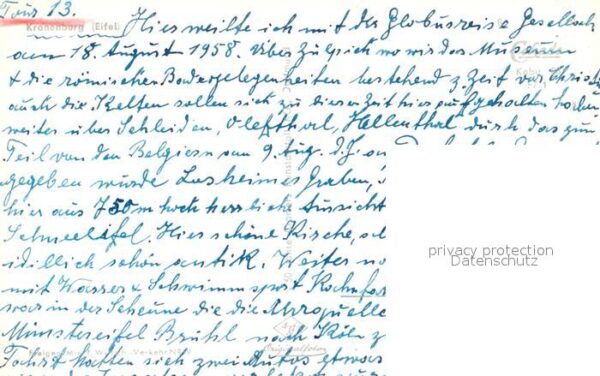 Tour 13.
Kronenburg (Eifel)
Hier weilte ich mit der Globusreise Gesellsch
am 18. August 1958. Über Zülpich wo wir das Museum
& die römischen Badegelegenheiten bestehend z. Zeit vor Christi
auch die Kelten sollen sich zu dieser Zeit hier aufgehalten haben
weiter über Schleiden, Oleftal, Hellenthal durch das zum
Teil von den Belgiern am 9. Aug. d. J. an
gegeben wurde Losheimer Graben,
hier aus 750 m hoch herrliche Aussicht
Schneeifel. Hier schöne Kirche,
idillich schön antik. Weiter
mit Wasser & Schwimmsport
war in der Scheune die die Ahrquelle
Münstereifel Brühl nach Köln
Fahrt hatten sich zwei Autos etwas
privacy protection
Datenschutz